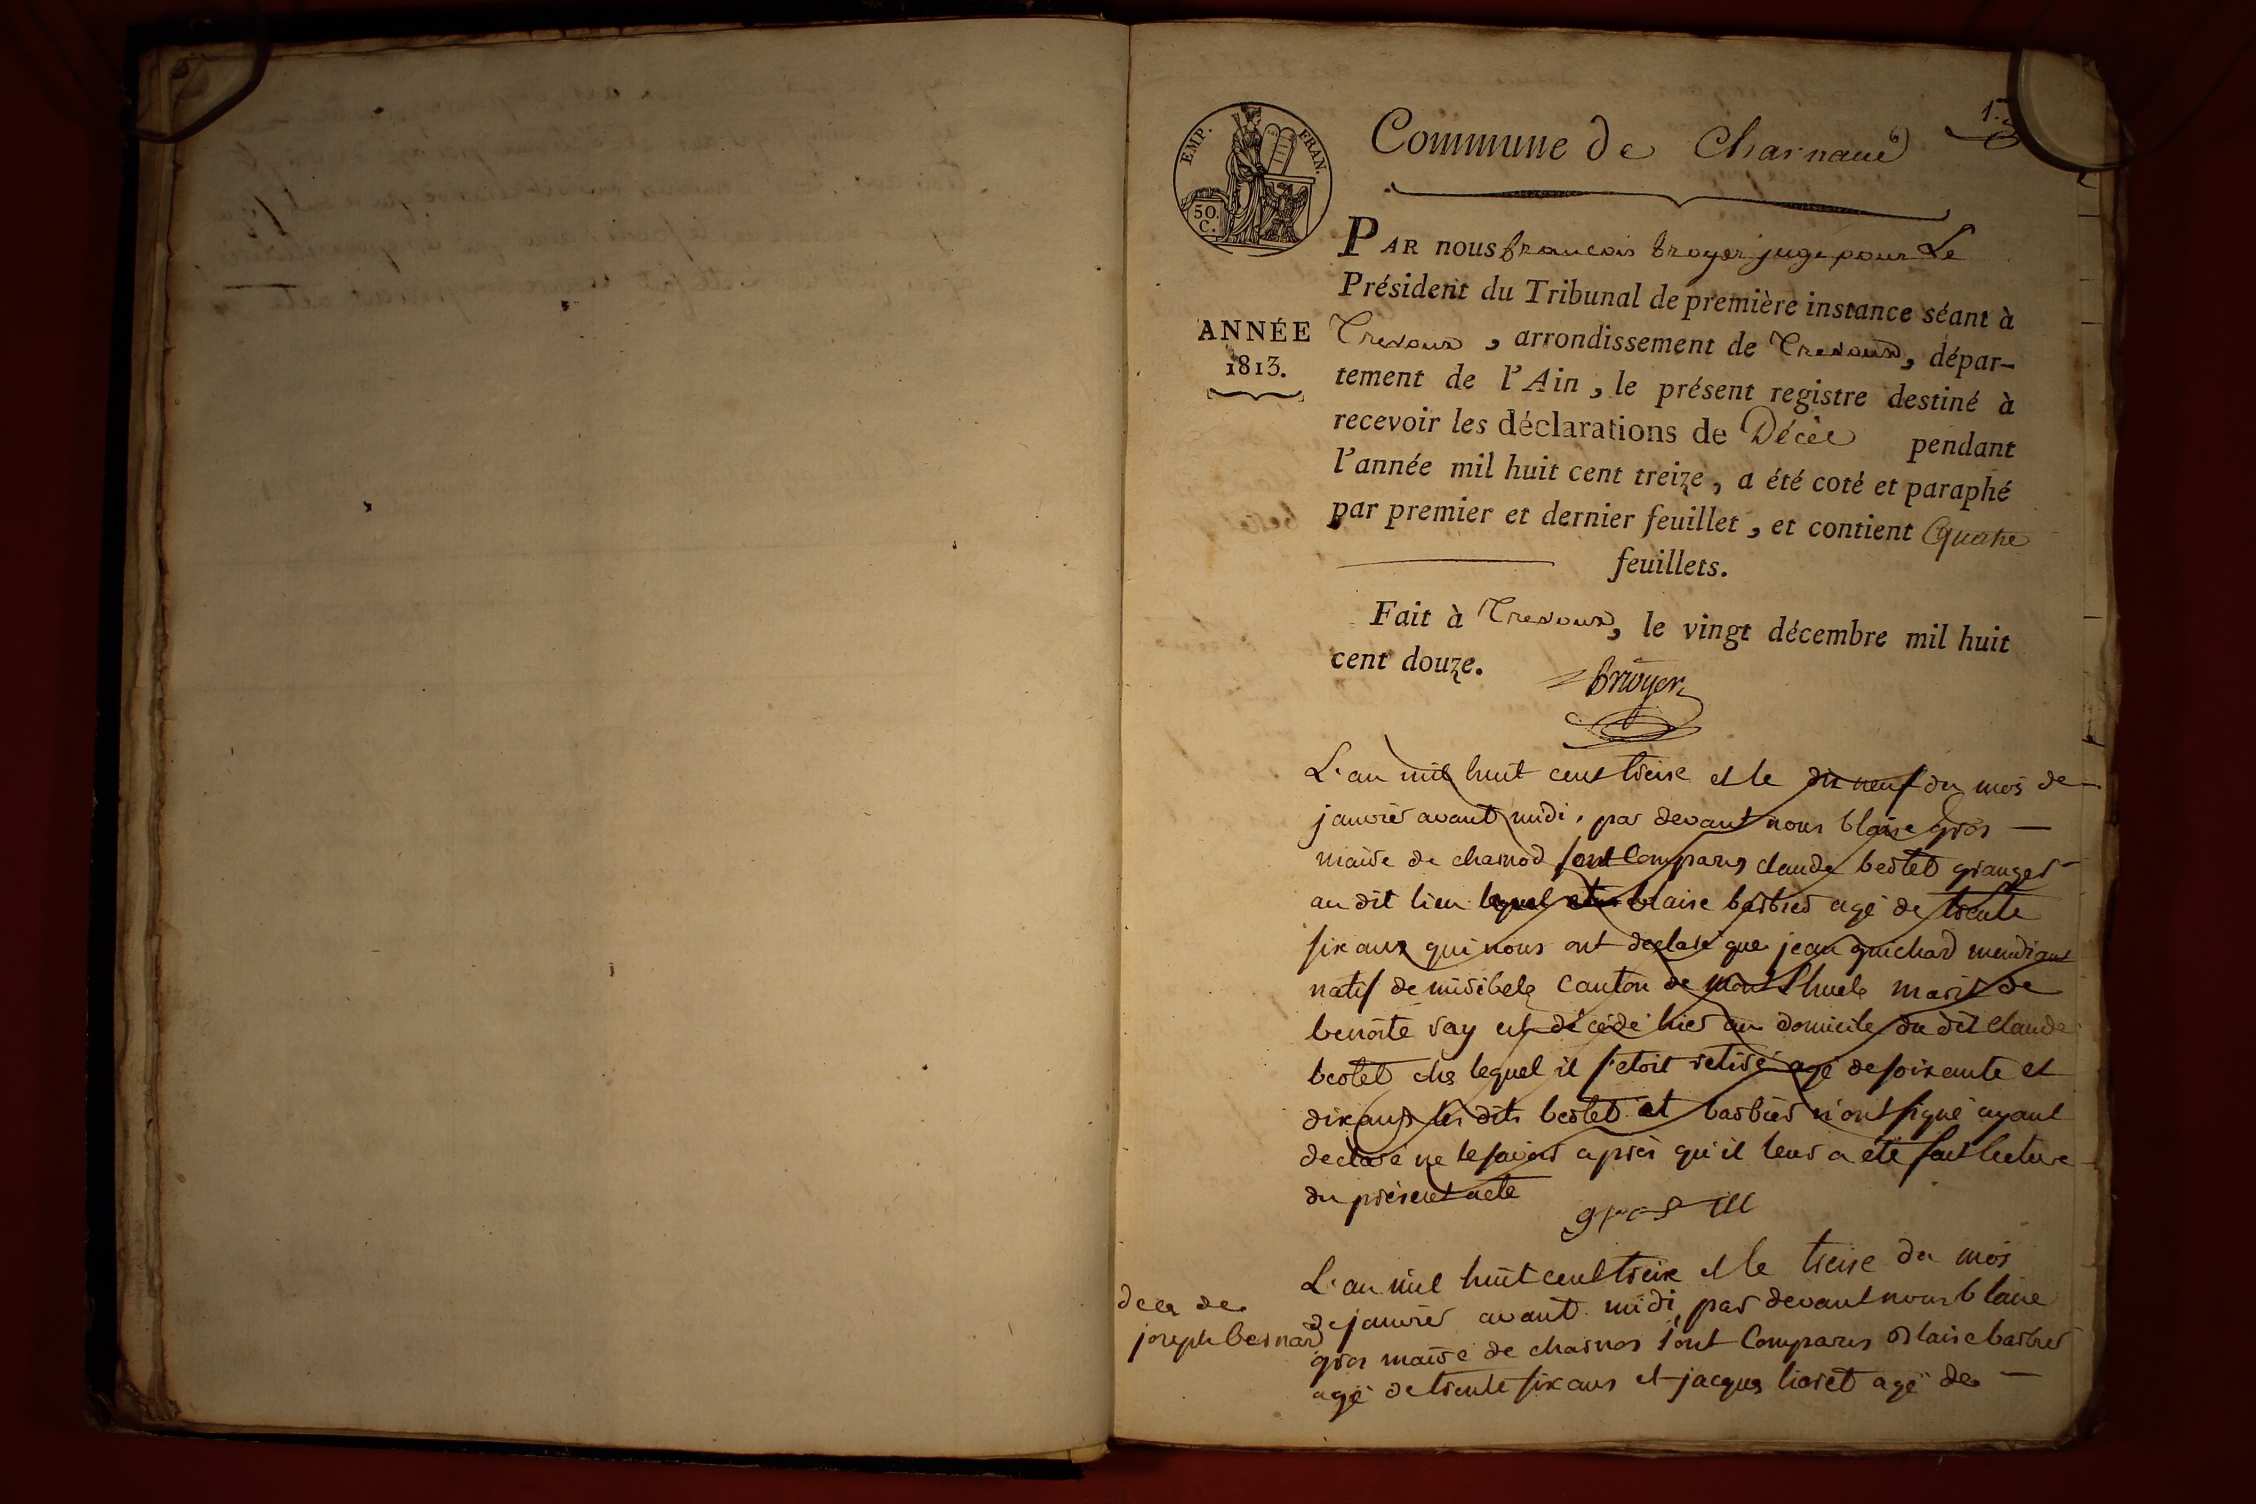 1.er
Commune de Charnaud
EMP. FRAN.
50.
C.
PAR nous francois Broyer juge pour Le
Président du Tribunal de première instance séant à
ANNÉE
1813.
Trevoux, arrondissement de Trevoux, dépar-
tement de l'Ain, le présent registre destiné à
recevoir les déclarations de Décès pendant
l'année mil huit cent treize, a été coté et paraphé
par premier et dernier feuillet, et contient Quatre
feuillets.
Fait à Trevoux, le vingt décembre mil huit
cent douze.
Broyer
L'an mil huit cent treise et le dix neuf du mois de
janvier avant midi, par devant nous blaise gros
maire de charnod sont Comparus claude bertet granger
au dit lieu blaise barbier agé de trente
six ans qui nous ont declaré que jean guichard mendiant
natif de miribele canton de mont Lhuele marit de
benoite ray est décédé hier au domicile du dit claude
bertet ches lequel il s'etoit retiré agé de soixante et
dix ans les dits bertet et barbier n'ont signé ayant
declaré ne le savoir après qu'il leur a été fait lecture
du present acte
gros m
L'an mil huit cent treise et le treise du mois
de janvier avant midi, par devant nous blaise
deces de
joseph bernard
gros maire de charnos sont Comparus Blaise barbier
agé de trente six ans et jacques lioret agé de